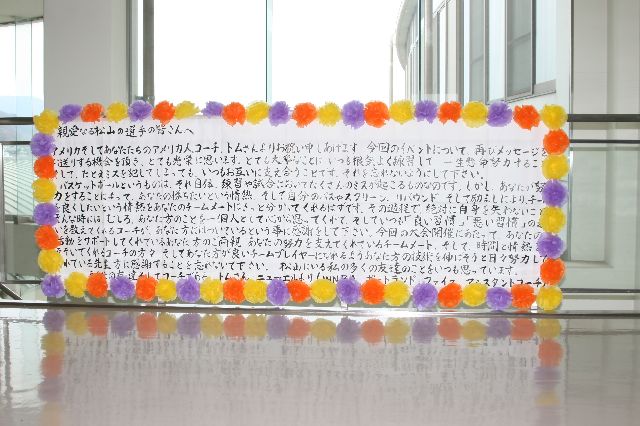 親愛なる松山の選手の皆さんへ
アメリカそしてあなたたちのアメリカ人コーチ、トムさんよりお祝い申しあげます。今回のイベントについて、再びメッセージを
送りする機会を頂き、とても光栄に思います。とても大事なことは、いつも根気よく練習して、一生懸命努力すること
そして、たとえミスを犯してしまっても、いつもお互いに支え合うことです。それを忘れないようにして下さい。
バスケットボールというものは、それ自体、練習や試合においてたくさんのミスが起こるものなのです。しかし、あなたが努
力をすることによって、あなたの勝ちたいという情熱、そして自分のパスやスクリーン、リバウンド、そして励ましによりチーム
を良くしたいという情熱をあなたのチームメートにきっと分かってくれるはずです。その過程で、絶対に自身を失わないこと
んな時には、むしろ、あなたのことを一個人として心から思ってくれて、そしていつも「良い習慣」「悪い習慣」の違
いを教えてくれるコーチが、あなた方にはついているという事に感謝をして下さい。今回の大会開催にあたって、あなたの
活動をサポートしてくれているあなた方のご両親、あなたの努力を支えてくれているチームメート、そして、時間と情熱を
そそいでくれるコーチの方々、そしてあなた方が良いチームプレイヤーになれるようあなた方の技術を伸ばそうと日々努力して
くれている先生方に感謝することを忘れないで下さい。松山にいる私の多くの友達のことをいつも思っています。
アシスタントコーチ